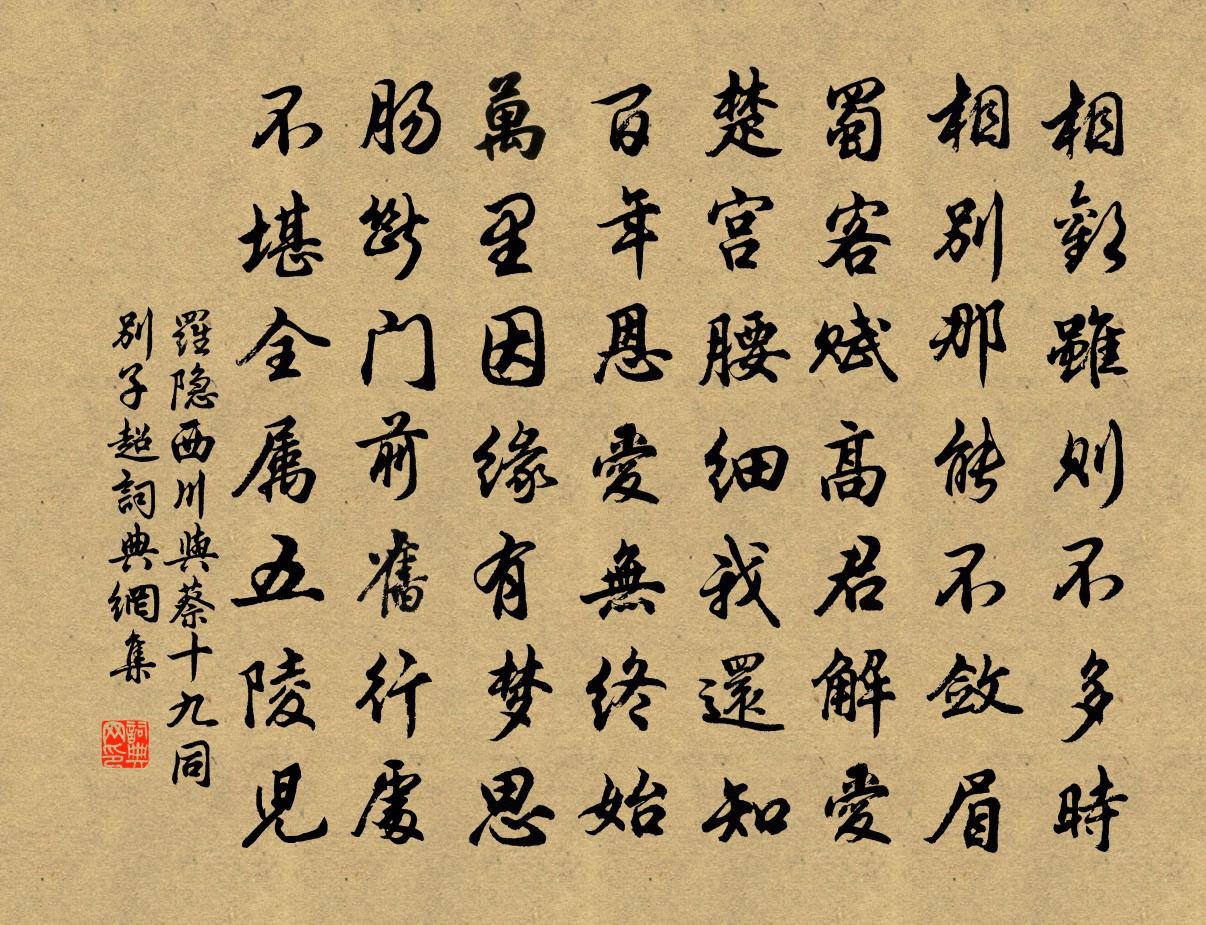 相歡雖則不多時
相別那能不斂眉
蜀客賦高君解愛
楚宮腰細我還知
百年恩愛無終始
萬里因緣有梦思
肠斷门前舊行處
不堪全属五陵児
羅隐西川與蔡十九同
別子超詞典網集
詞典
网印